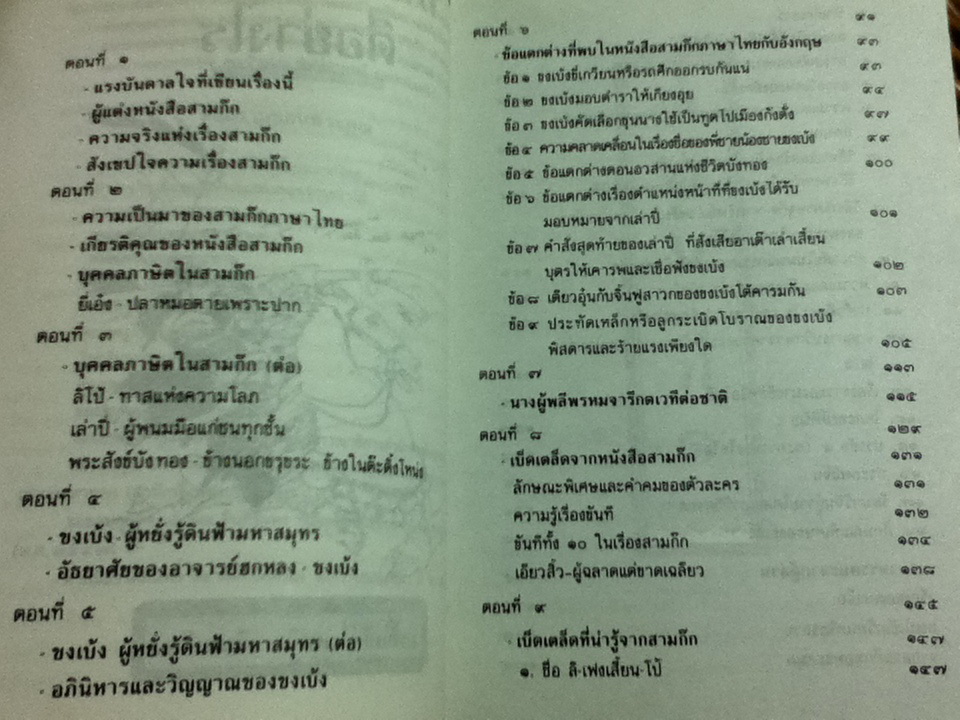 ตอนที่ ๑
- แรงบันดาลใจที่เขียนเรื่องนี้
- ผู้แต่งหนังสือสามก๊ก
- ความจริงแห่งเรื่องสามก๊ก
- สังเขปใจความเรื่องสามก๊ก
ตอนที่ ๒
- ความเป็นมาของสามก๊กภาษาไทย
- เกียรติคุณของหนังสือสามก๊ก
- บุคคลภาษิตในสามก๊ก
ยี่เอ๋ง - ปลาหมอตายเพราะปาก
ตอนที่ ๓
- บุคคลภาษิตในสามก๊ก (ต่อ)
ลิโป้ - ทาสแห่งความโลภ
เล่าปี่ - ผู้พนมมือแก่ชนทุกชั้น
พระสังข์บังทอง - ข้างนอกขรุขระ ข้างในต๊ะติ้งโหน่ง
ตอนที่ ๔
- ขงเบ้ง ผู้หยั่งรู้ดินฟ้ามหาสมุทร
- อัธยาศัยของอาจารย์ฮกหลง - ขงเบ้ง
ตอนที่ ๕
- ขงเบ้ง ผู้หยั่งรู้ดินฟ้ามหาสมุทร (ต่อ)
- อภินิหารและวิญญาณของขงเบ้ง
ตอนที่ ๖ ๙๑
- ข้อแตกต่างที่พบในหนังสือสามก๊กภาษาไทยกับอังกฤษ ๙๓
ข้อ ๑ ขงเบ้งขี่เกวียนหรือรถศึกออกรบกันแน่ ๙๓
ข้อ ๒ ขงเบ้งมอบตำราให้เกียงอุย ๙๔
ข้อ ๓ ขงเบ้งคัดเลือกขุนนางใช้เป็นทูตไปเมืองกังตั๋ง ๙๗
ข้อ ๔ ความคลาดเคลื่อนในเรื่องชื่อของพี่ชายน้องชายขงเบ้ง ๙๙
ข้อ ๕ ข้อแตกต่างตอนอวสานแห่งชีวิตบังทอง ๑๐๐
ข้อ ๖ ข้อแตกต่างเรื่องตำแหน่งหน้าที่ที่ขงเบ้งได้รับ
มอบหมายจากเล่าปี่ ๑๐๑
ข้อ ๗ คำสั่งสุดท้ายของเล่าปี่ ที่สั่งเสียอาเต๊าเล่าเสี้ยน
บุตรให้เคารพและเชื่อฟังขงเบ้ง ๑๐๒
ข้อ ๘ เตียวอุ๋นกับจิ๋นฟูสาวกของขงเบ้งโต้คารมกัน ๑๐๓
ข้อ ๙ ประทัดเหล็กหรือลูกระเบิดโบราณของขงเบ้ง
พิสดารและร้ายแรงเพียงใด ๑๐๕
ตอนที่ ๗ ๑๑๓
- นางผู้พลีพรหมจารีกตเวทีต่อชาติ ๑๑๕
ตอนที่ ๘ ๑๒๙
- เบ็ดเตล็ดจากหนังสือสามก๊ก ๑๓๑
ลักษณะพิเศษและคำคมของตัวละคร ๑๓๑
ความรู้เรื่องขันที ๑๓๒
ขันทีทั้ง ๑๐ ในเรื่องสามก๊ก ๑๓๔
เอียวสิ้ว-ผู้ฉลาดแต่ขาดเฉลียว ๑๓๘
ตอนที่ ๙ ๑๔๕
- เบ็ดเตล็ดที่น่ารู้จากสามก๊ก ๑๔๗
๑. ชื่อ ลิ-เฟงเสี้ยน-โป้ ๑๔๗